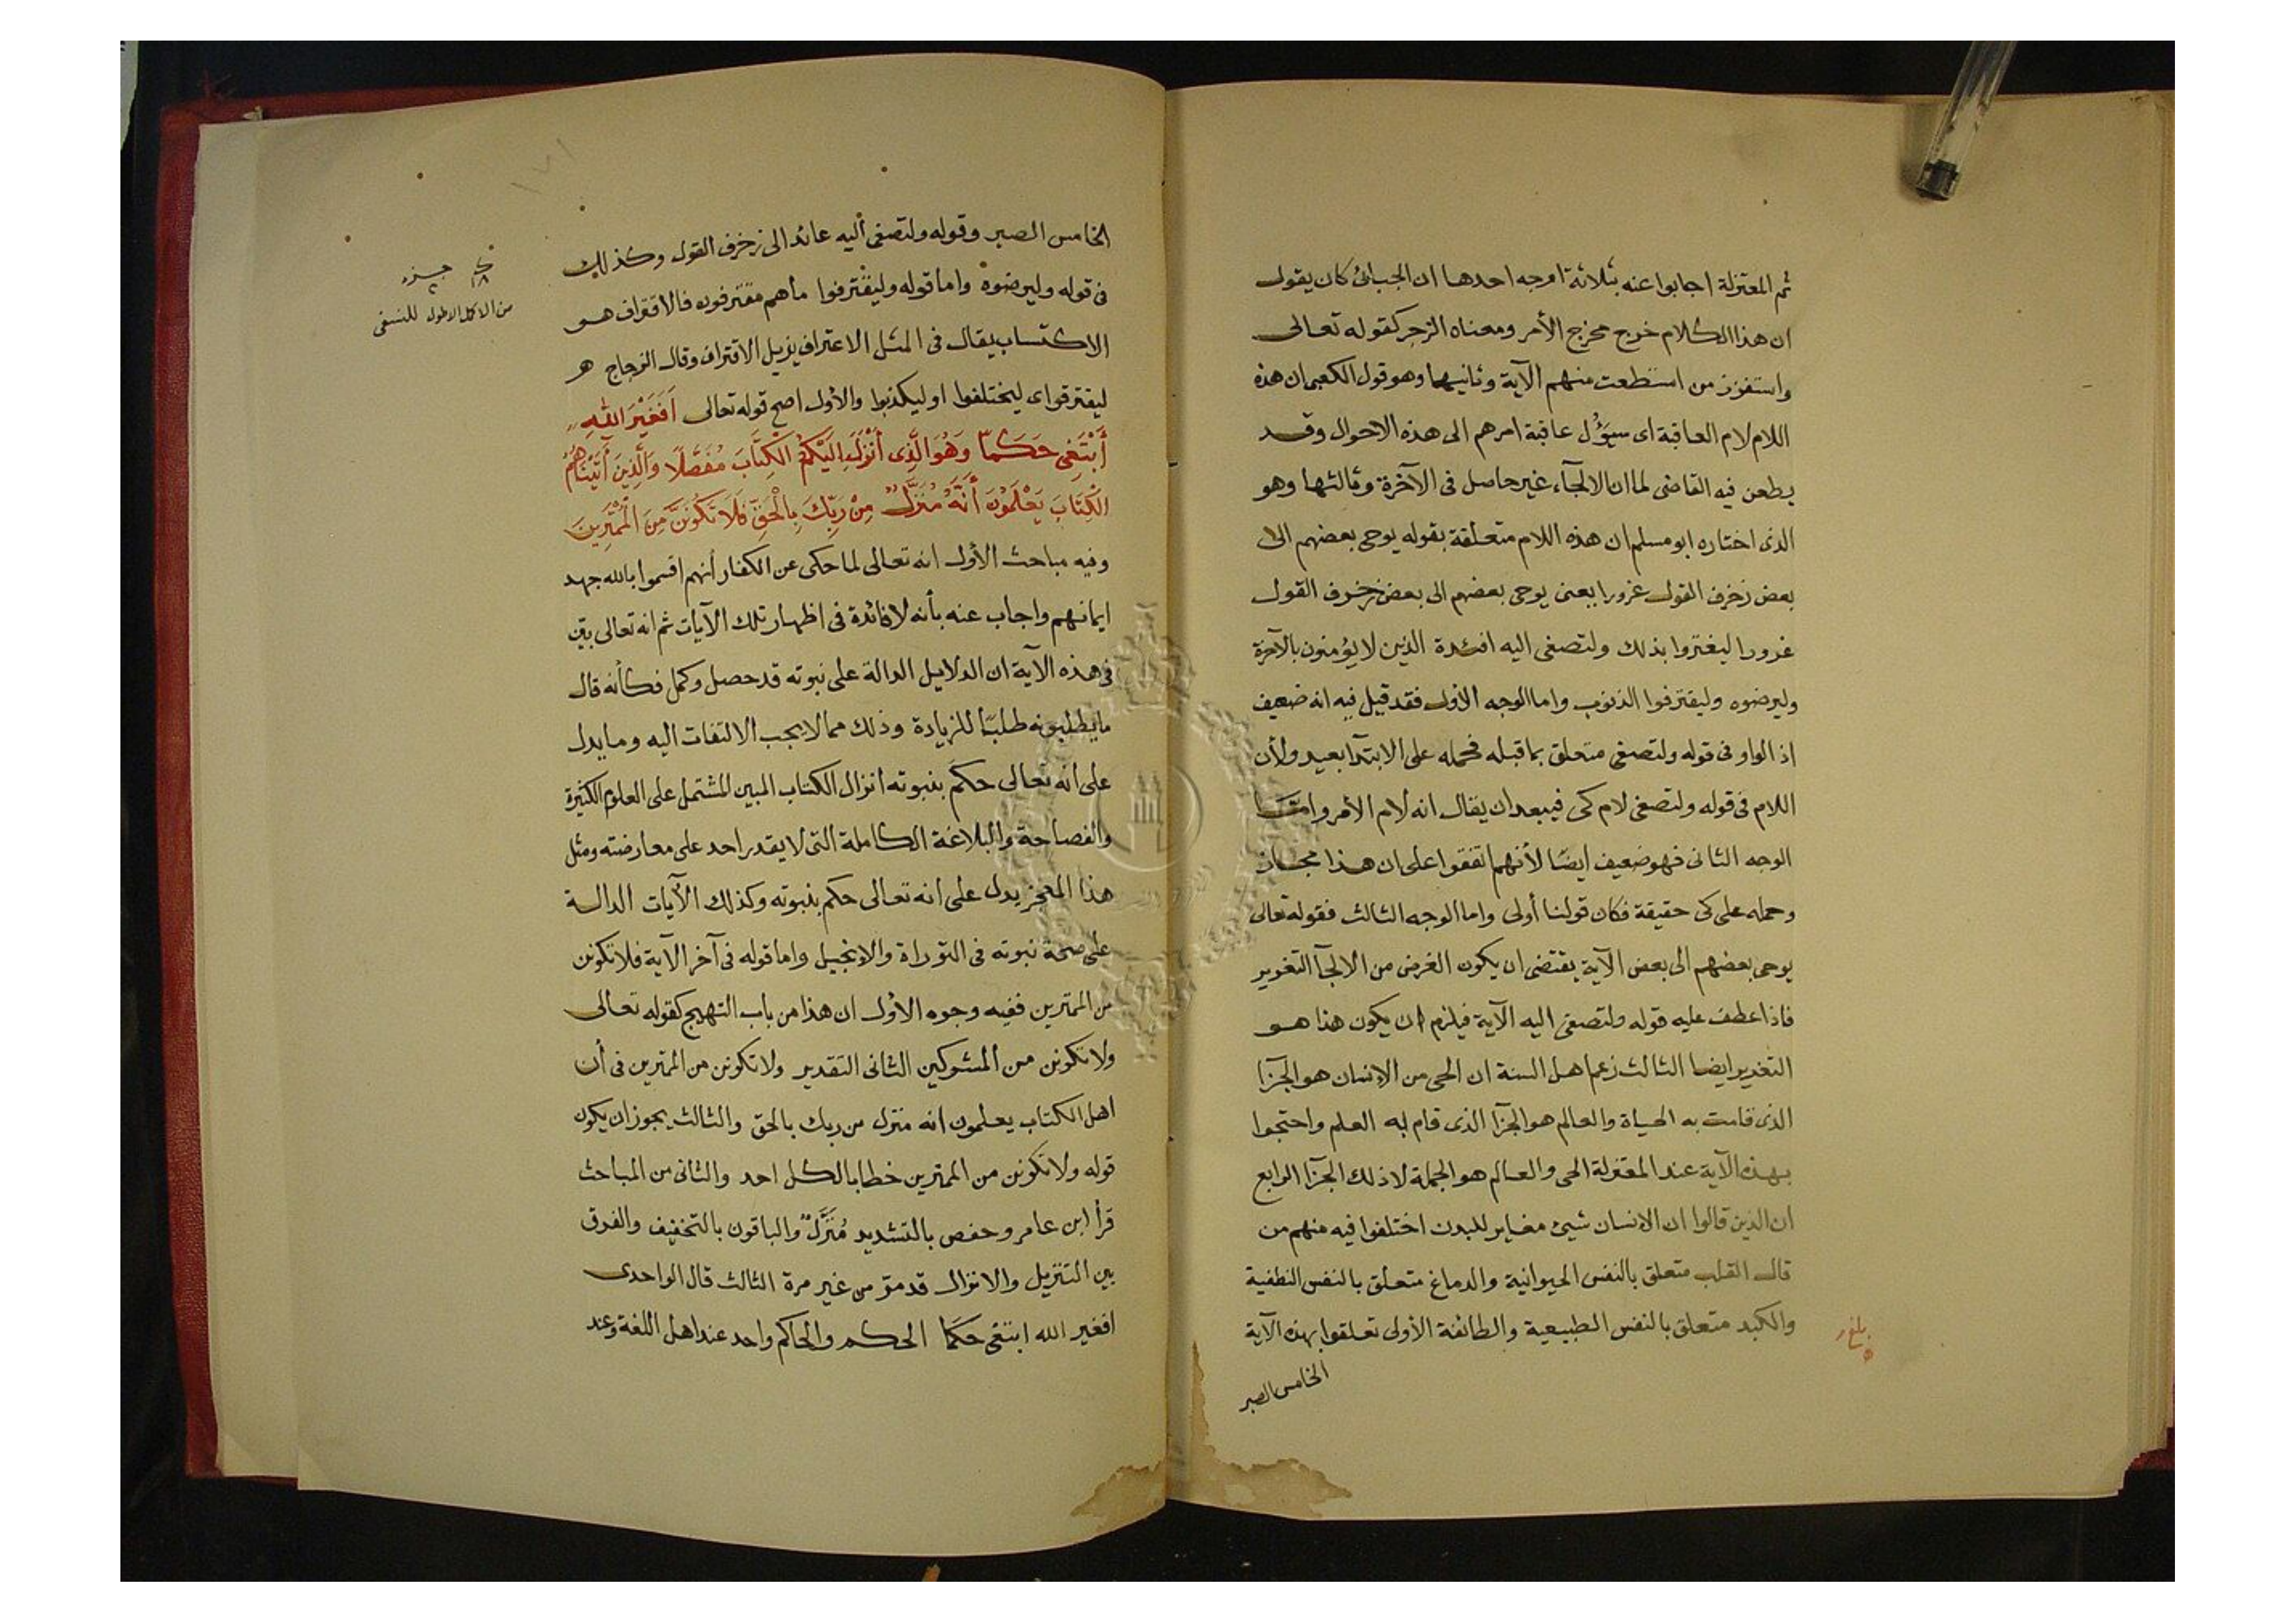 ثم المعتزلة اجابوا عنه بثلاثة اوجه احدها ان الجبائى كان يقول
ان هذا الكلام خرج مخرج الأمر ومعناه الزجر كقوله تعالى
واستفزز من استطعت منهم الآية وثانيها وهو قول الكعبى ان هذه
اللام لام العاقبة اى سيؤل عاقبة امرهم الى هذه الاحوال وقد
يطعن فيه القاضى لما ان الالجآء غير حاصل فى الآخرة وثالثها وهو
الذى اختاره ابو مسلم ان هذه اللام متعلقة بقوله يوحى بعضهم الى
بعض زخرف القول غرورا يعنى يوحى بعضهم الى بعض زخرف القول
غرورا ليغتروا بذلك ولتصغى اليه افئدة الذين لا يؤمنون بالآخرة
وليرضوه وليقترفوا الذنوب واما الوجه الأول فقد قيل فيه انه ضعيف
اذ الواو فى قوله ولتصغى متعلق بما قبله فحمله على الابتدآ بعيد ولأن
اللام فى قوله ولتصغى لام كى فيبعد ان يقال انه لام الأمر وامتا
الوجه الثانى فهو ضعيف ايضًا لأنهم اتفقوا على ان هذا مجاز
وحمله على كى حقيقة فكان قولنا أولى واما الوجه الثالث فقوله تعالى
يوحى بعضهم الى بعض الآية يقتضى ان يكون الغرض من الالجآ التغرير
فاذا عطف عليه قوله ولتصغى اليه الآية فيلزم ان يكون هذا هو
التغرير ايضا الثالث زعم اهل السنة ان الحى من الإنسان هو الجزآ
الذى قامت به الحياة والعالم هو الجزآ الذى قام به العلم واحتجوا
بهذه الآية عند المعتزلة الحى والعالم هو الجملة لا ذلك الجزآ الرابع
ان الذين قالوا ان الانسان شيئ مغاير للبدن اختلفوا فيه منهم من
قال القلب متعلق بالنفس الحيوانية والدماغ متعلق بالنفس النطفية
والكبد متعلق بالنفس الطبيعية والطائفة الأولى تعلقوا بهذه الآية
الخامس الصبر
الخامس الصبر وقوله ولتصغى أليه عائد الى زخرف القول وكذلك
فى قوله وليرضوه واما قوله وليقترفوا ما هم مقترفون فالاقتراف هو
الاكتساب يقال فى المثل الاعتراف يزيل الاقتراف وقال الزجاج هر
ليفترقوا اى ليختلفوا او ليكذبوا والأول اصح قوله تعالى اَفَغَيْرَ اللهِ
أَبْتَغِى حَكَمًا وَهُوَ الَّذِى أَنْزَلَ اِلَيْكُمُ الْكِتَابَ مُفَصَّلًا وَالَّذِينَ آتَيْنَاهُمُ
الْكِتَابَ يَعْلَمُونَ أَنَّهُ مُنَزَّلٌ مِنْ رَبِّكَ بِالْحَقِّ فَلَا تَكُونَنَّ مِنَ الْمُمْتَرِينَ
وفيه مباحث الأول انه تعالى لما حكى عن الكفار أنهم اقسموا بالله جهد
ايمانهم واجاب عنه بأنه لا فائدة فى اظهار تلك الآيات ثم انه تعالى بيّن
فى هذه الآية ان الدلايل الدالة على نبوته قد حصل وكمل فكأنه قال
ما يطلبونه طلبًا للزيادة وذلك مما لا يجب الالتفات اليه وما يدل
على انه تعالى حكم بنبوته انزال الكتاب المبين المشتمل على العلوم الكثيرة
والفصاحة والبلاغة الكاملة التى لا يقدر احد على معارضته ومثل
هذا المعجز يدل على انه تعالى حكم بنبوته وكذلك الآيات الدالة
على صحة نبوته فى التوراة والانجيل واما قوله فى آخر الآية فلا تكونن
من الممترين ففيه وجوه الأول ان هذا من باب التهييج كقوله تعالى
ولا تكونن من المشركين الثانى التقدير ولا تكونن من الممترين فى أن
اهل الكتاب يعلمون انه منزل من ربك بالحق والثالث يجوز ان يكون
قوله ولا تكونن من الممترين خطابا لكل احد والثانى من المباحث
قرأ ابن عامر وحفص بالتشديد مُنَزَّلٌ والباقون بالتخفيف والفرق
بين التنزيل والانزال قد مرّ من غير مرة الثالث قال الواحدى
افغير الله ابتغى حكمًا الحكم والحاكم واحد عند اهل اللغة وعند
جزء
من الاكمل الاطول للنسفى